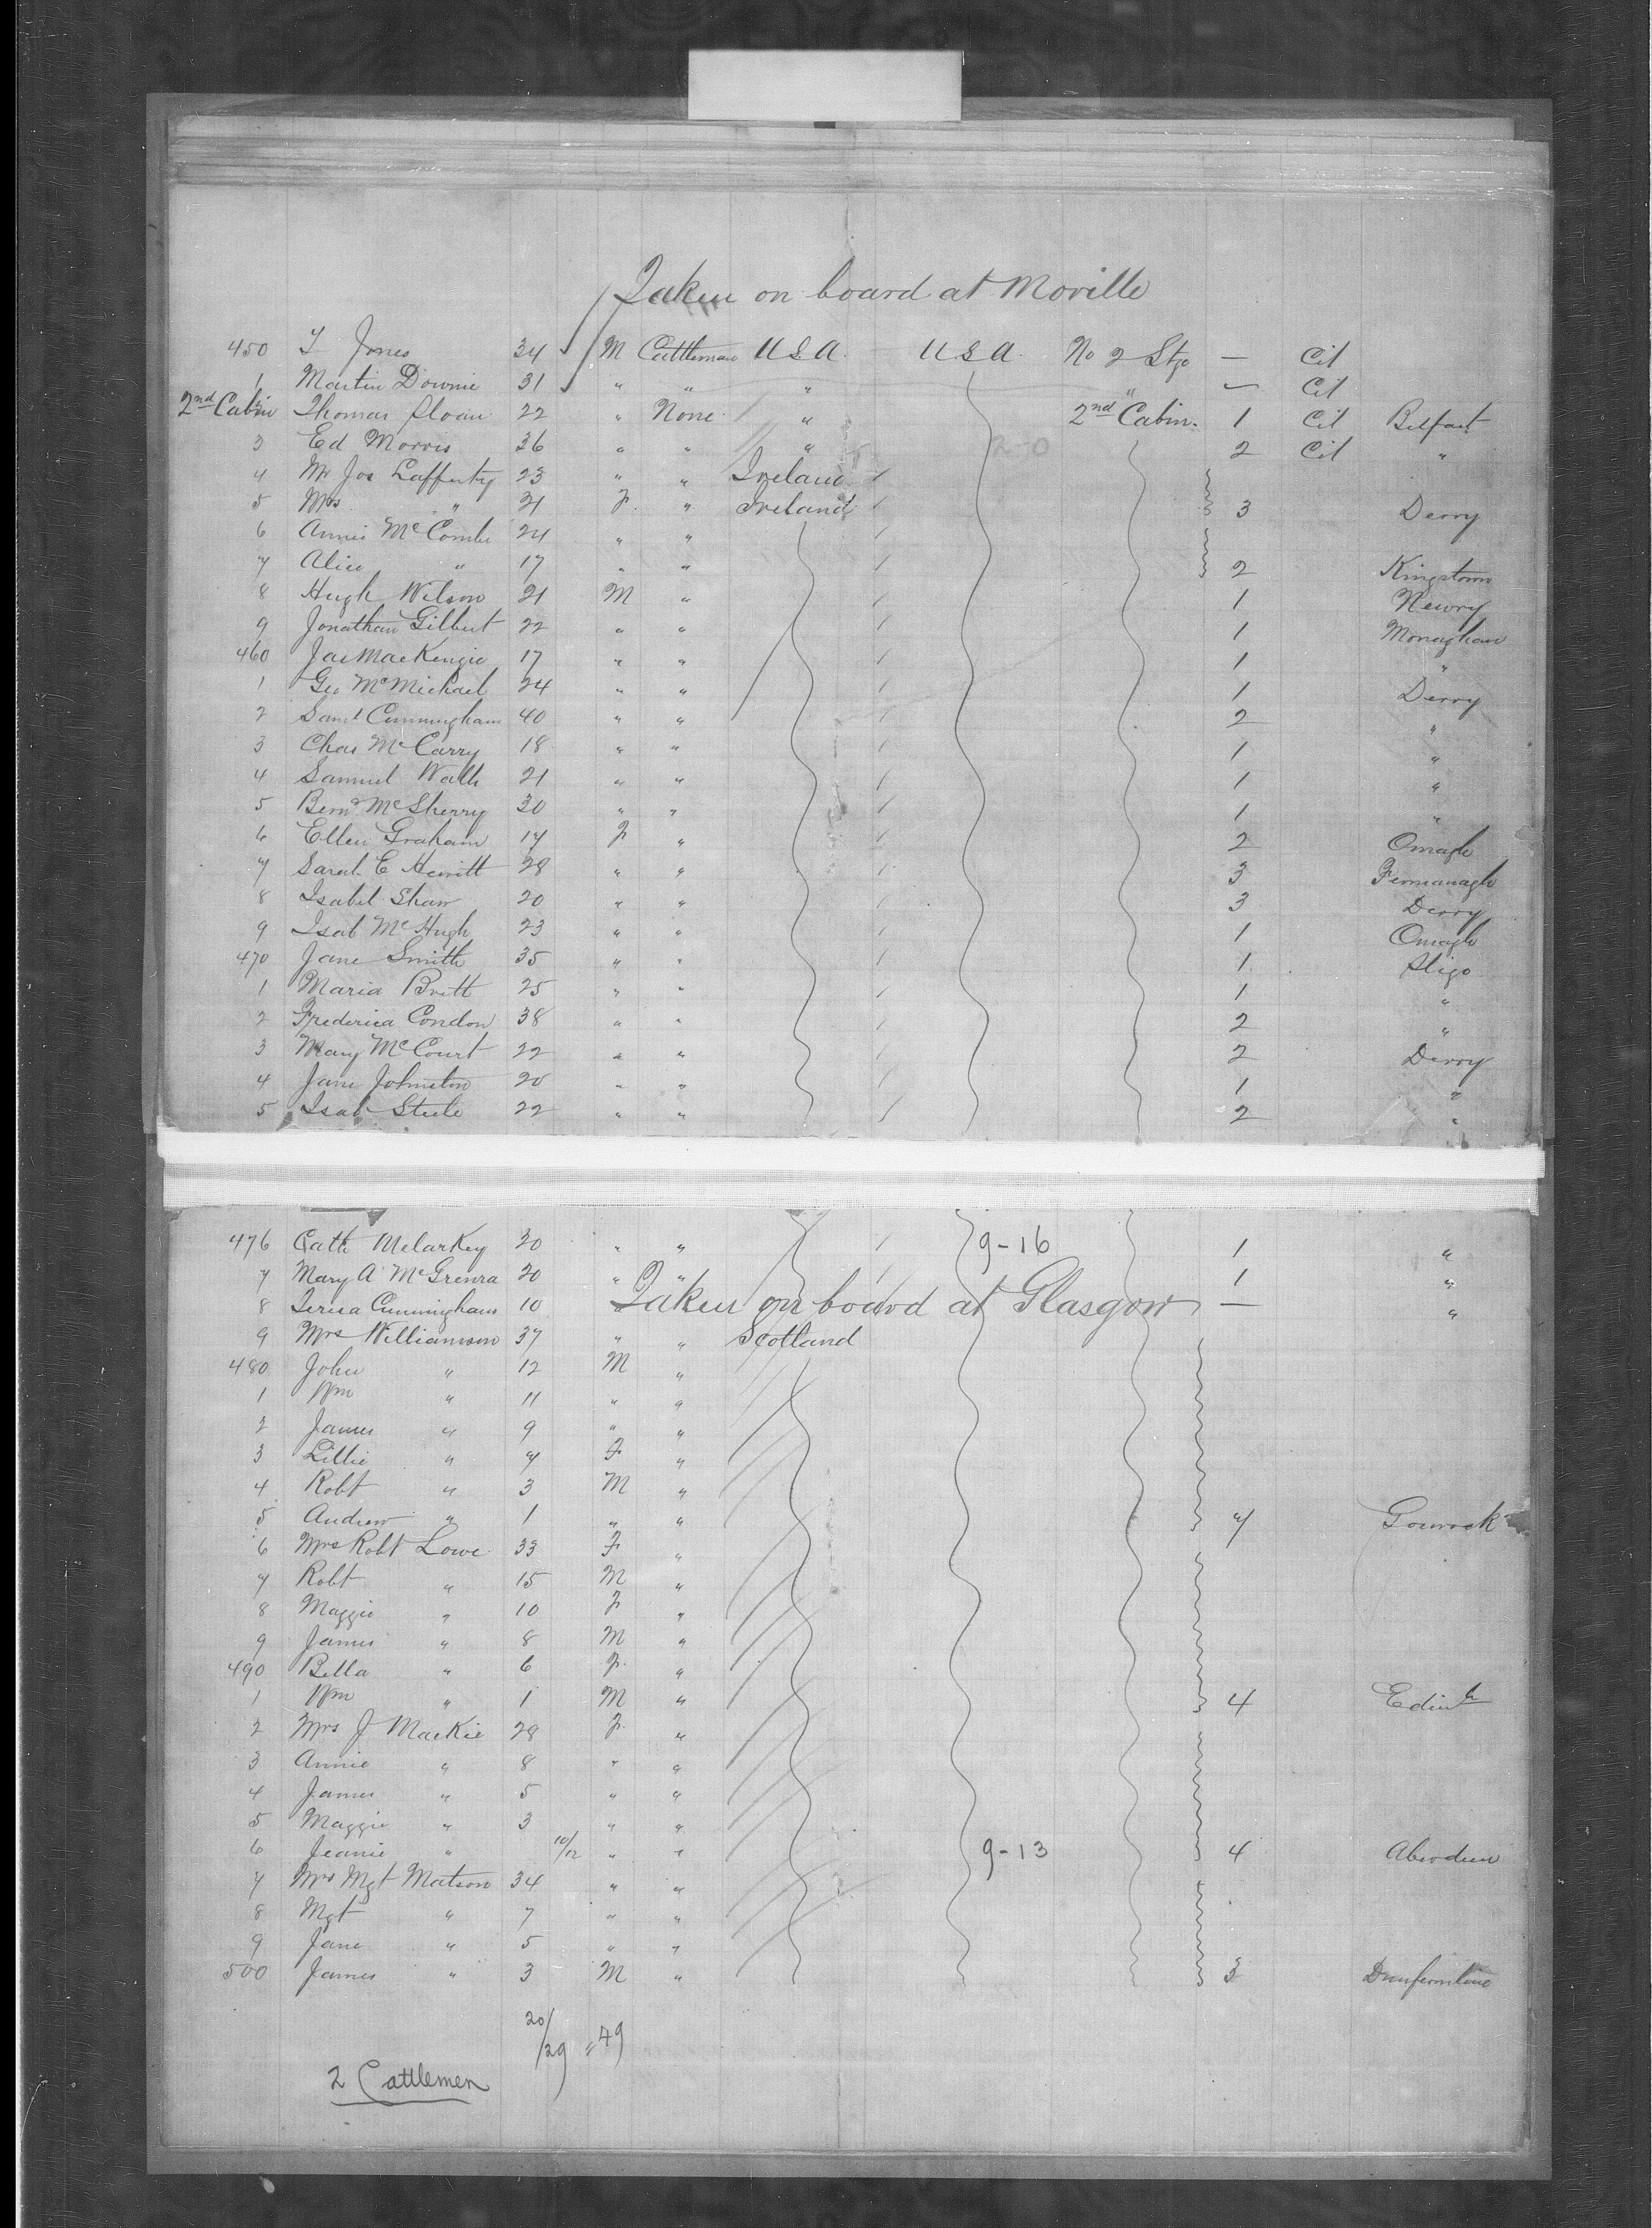 Taken on board at Moville
450 T Jones 34 M Cattleman U S A. U S A. No 2 Stge — Cit
1 Martin Downie 31 " " " " — Cit
2nd Cabin Thomas Sloan 22 " None " 2nd Cabin. 1 Cit Belfast
3 Ed Morris 36 " " " 2 Cit "
4 Mr Jos Lafferty 23 " " Ireland
5 Mrs " 21 F. " Ireland 3 Derry
6 Annie McCombe 24 " "
7 Alice " 17 " " 2 Kingstown
8 Hugh Wilson 21 M " 1 Newry
9 Jonathan Gilbert 22 " " 1 Monaghan
460 Jas MacKenzie 17 " " 1 "
1 Geo McMichael 24 " " 1 Derry
2 Saml Cunningham 40 " " 2 "
3 Chas McCarry 18 " " 1 "
4 Samuel Watt 21 " " 1 "
5 Bernd McSherry 30 " " 1 "
6 Ellen Graham 17 F " 2 Omagh
7 Sarah E Hewitt 28 " " 3 Fermanagh
8 Isabel Shaw 20 " " 3 Derry
9 Isab McHugh 23 " " 1 Omagh
470 Jane Smith 35 " " 1 Sligo
1 Maria Brett 25 " " 1 "
2 Frederica Condon 38 " " 2 "
3 Mary McCourt 22 " " 2 Derry
4 Jane Johnston 20 " " 1 "
5 Isab Steele 22 " " 2 "
476 Cath Melarkey 30 " " 9-16 1 "
7 Mary A McGrenra 20 " " 1 "
8 Teresa Cunningham 10 Taken on board at Glasgow — "
9 Mrs Williamson 37 " " Scotland
480 John " 12 M "
1 Wm " 11 " "
2 James " 9 " "
3 Lillie " 7 F "
4 Robt " 3 M "
5 Andrew " 1 " " 7 Gourock
6 Mrs Robt Lowe 33 F "
7 Robt " 15 M "
8 Maggie " 10 F "
9 James " 8 M "
490 Bella " 6 F. "
1 Wm " 1 M " 4 Edinh
2 Mrs J Mackie 28 F. "
3 Annie " 8 " "
4 James " 5 " "
5 Maggie " 3 " "
6 Jeanie " 10/12 " " 9-13 4 Aberdeen
7 Mrs Mgt Matson 34 " "
8 Mgt " 7 " "
9 Jane " 5 " "
500 James " 3 M " 3 Dunfermline
20/29 = 49
2 Cattlemen